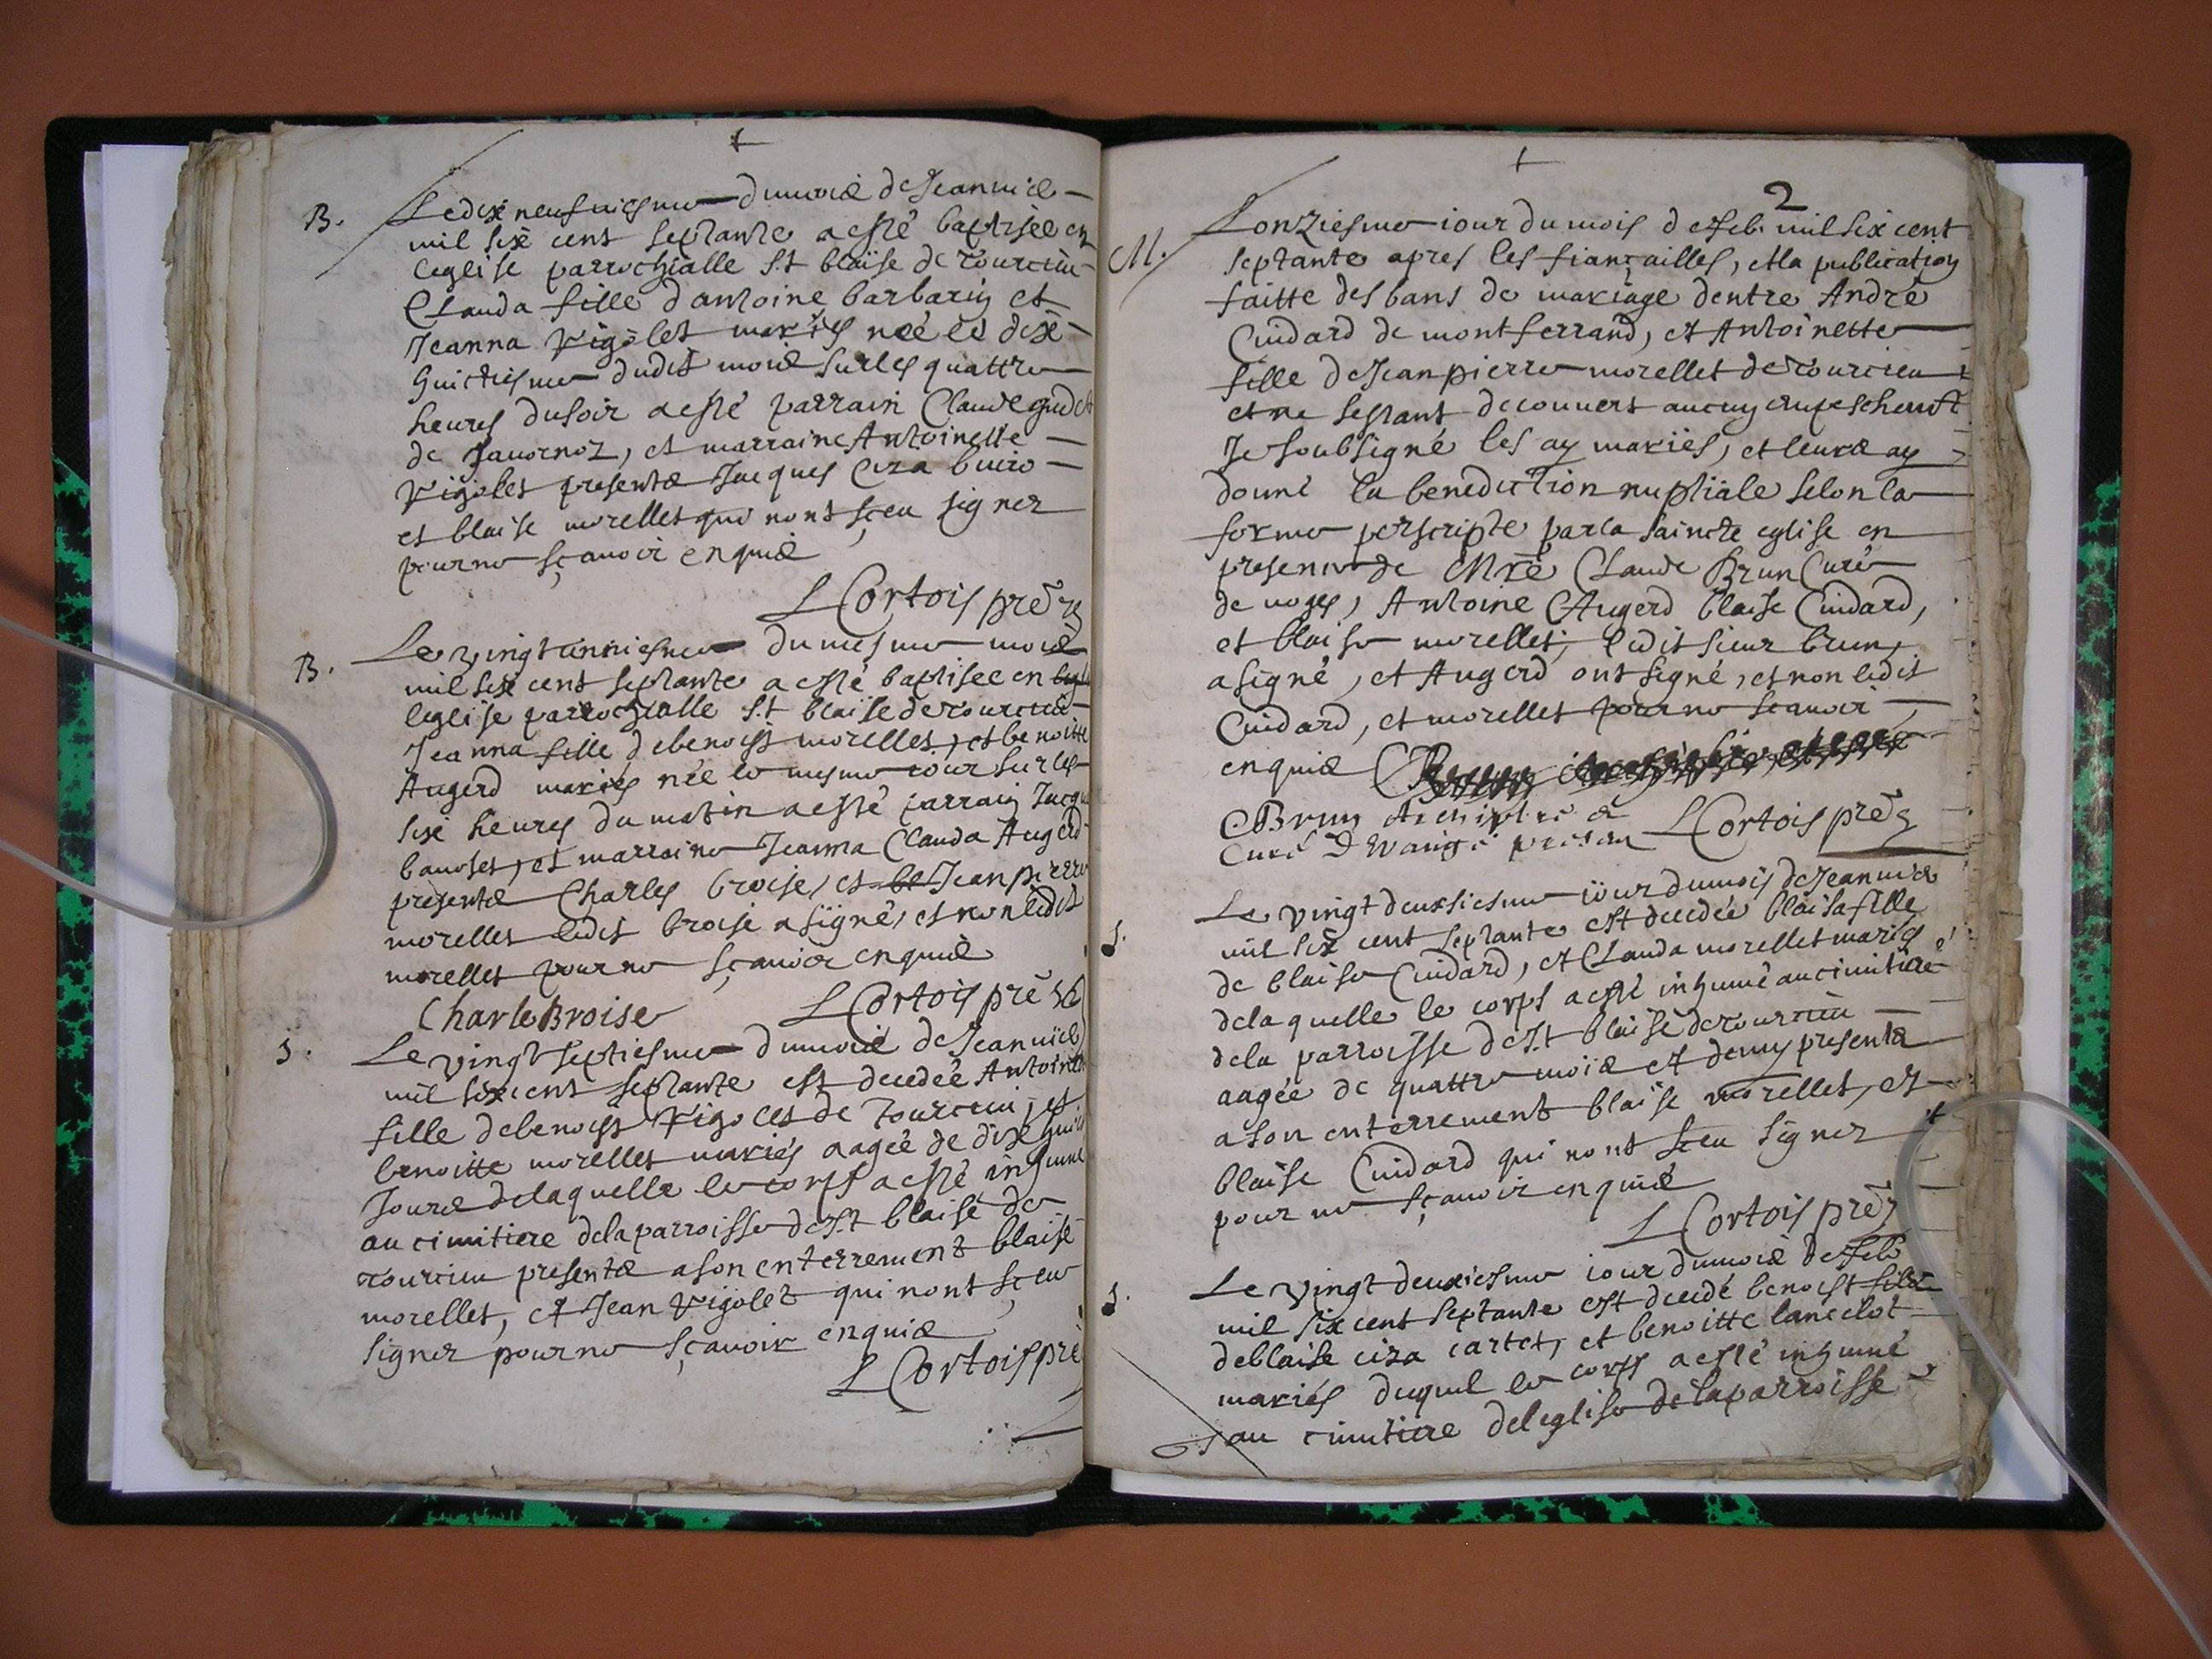 B. Le dix neufuiesme du mois de Jeanuier
mil six cens septante a esté baptisée en
leglise parrochialle S.t blaise de tourcieu
Clauda fille d'antoine barbarin et
Jeanna Vigolet mariés née le dix
huictiesme dudit mois sur les quattre
heures du soir a esté parrain Claude
de Jauornoz, et marraine Antoinette
Vigolet presents Jacques Ciza buiro
et blaise morellet qui nont sçeu signer
pour ne sçauoir enquis
L Cortois prétre
B. Le vingtunniesme du mesme mois
mil six cens septante a esté baptisee en
leglise parrochialle S.t blaise de tourcieu
Jeanna fille de benoist morellet, et benoitte
Augerd mariés née le mesme iour sur les
six heures du matin a esté parrain
bauoset, et marraine Jeanna Clauda Augerd
presents Charles broise, et Jean pierre
morellet ledit broise a signé, et non ledit
morellet pour ne sçauoir enquis
Charle Broise L Cortois prétre
S. Le vingt septiesme du mois de Jeanuier
mil six cens septante est decedée Antoinette
fille de benoist Vigolet de tourcieu, et
benoitte morellet mariés aagée de dix huict
Jours de laquelle le corps a esté inhumé
au cimitiere de la parroisse de S.t blaise de
tourcieu presents a son enterrement blaise
morellet, et Jean Vigolet qui nont sceu
signer pour ne sçauoir enquis
L Cortois pré
2
M. Lonziesme iour du mois de feb. mil six cent
septante apres les fiançailles, et la publication
faitte des bans de mariage dentre André
Cuidard de montferrand, et Antoinette
fille de Jean pierre morellet de tourcieu
et ne sestant decouuert aucun empeschemt
Je soubsigné les ay mariés, et leurs ay
donné la benediction nuptiale selon la
forme perscripte par la saincte eglise en
presence de Mre Claude Brun Curé
de uoges, Antoine Augerd blaise Cuidard,
et blaise morellet, ledit sieur brun,
a signé, et Augerd ont signé, et non ledit
Cuidard, et morellet pour ne scauoir
enquis
C Brun Archiptre &
Curé D present L Cortois prétre
S. Le vingt deuxsiesme iour du mois de Jeanuier
mil six cent septante est decedée blaisa fille
de blaise Cuidard, et Clauda morellet mariés
de laquelle le corps a esté inhumé au cimitiere
de la parroisse de S.t blaise de tourcieu
aagée de quattre mois et demy presents
a son enterrement blaise morellet, et
blaise Cuidard qui nont sceu signer
pour ne sçauoir enquis
L Cortois prétre
S. Le vingt deuxiesme iour du mois de feb
mil six cent septante est decedé benoist fils
de blaise ciza cartet, et benoitte lancelot
mariés duquel le corps a esté inhumé
au cimitiere de leglise de la parroisse